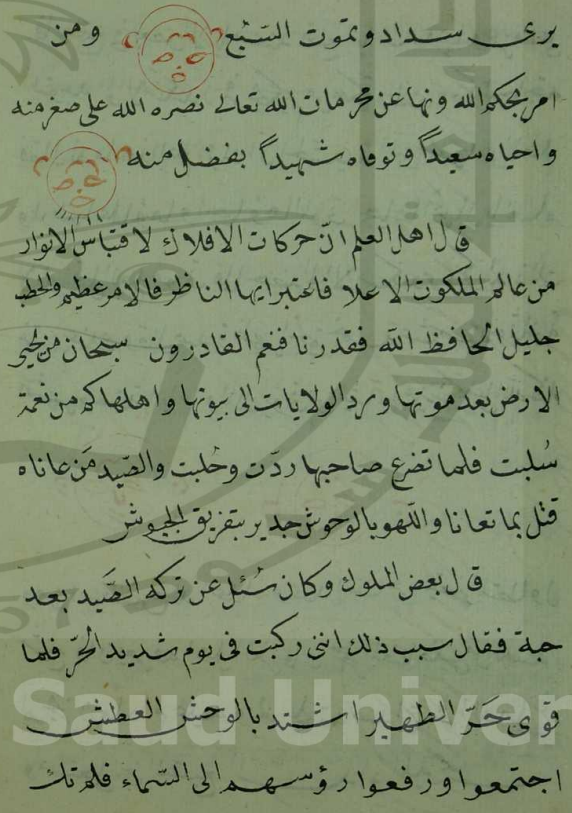 يرى سداد و بموت السبع ومن
امر بحكم الله ونها عن محرمات الله تعالى نصره الله على صغر منه
واحياه سعيداً وتوفاه شهيداً بفضل منه
قال اهل العلم انّ حركات الافلاك لاقتباس الانوار
من عالم الملكوت الاعلا فاعتبر ايها الناظر فالامر عظيم والخطب
جليل الحافظ الله فقدرنا فنعم القادرون سبحان من يحيى
الارض بعد موتها ويرد الولايات الى بيوتها واهلها كم من نعمة
سُلبت فلما تضرع صاحبها ردّت وحُلبت والصّيد مَن عاناه
قتل بما تعانا واللّهو بالوحوش جدير بتفريق الجيوش
قال بعض الملوك وكان سُئل عن تركه الصَيد بعد
حبة فقال سبب ذلك اننى ركبت فى يوم شديد الحرّ فلما
قوى حَرّ الظهير اشتد بالوحش العطش
اجتمعوا ورفعوا رؤسهم الى السّماء فلم تك
Saud Univer